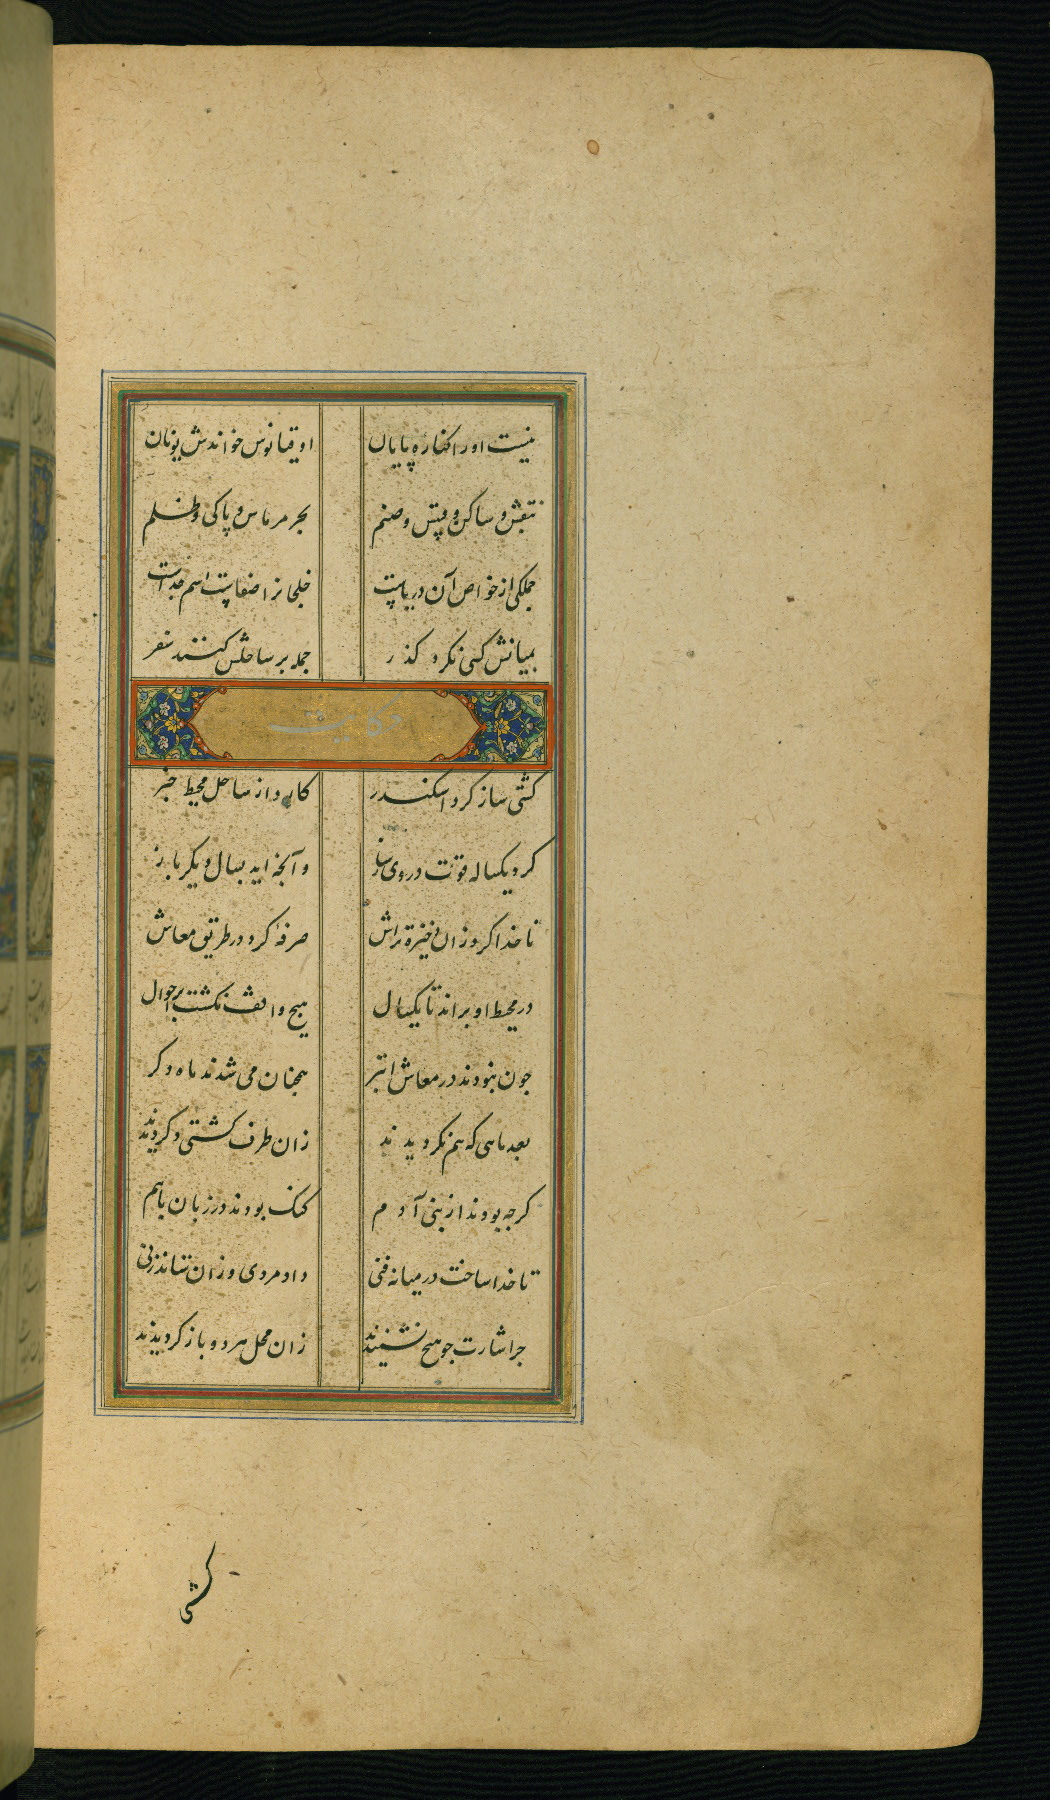 نیست او را کناره پایان اوقیانوس خواندش یونان
بحر مرماس و پاکی و ظلم
جملکی از خواص آن دریاست
بمیانش کسی نکرد کذر جمله بر ساحلش کنند سفر
حکایت
کشتی ساز کرد اسکندر کارد از ساحل محیط خبر
کرد یکساله قوت در وی ساز وآنچه اید بسال دیکر باز
ناخدا کرد زان ذخیره تراش صرفهٔ کرد در طریق معاش
در محیط او براند تا یکسال هیچ واقف نکشت بر احوال
چون نبودند در معاش ابتر همچنان می شدند ماه دکر
بعد ماهی که هم نکردیدند زان طرف کشتی دکر دیدند
کرچه بودند از بنی آدم کنک بودند در زبان باهم
ناخدا ساخت در میانه فنی داد مردی وزان ستاند زنی
جز اشارت چو هیچ نشنیدند زان محل هر دو باز کردیدند
کشتی